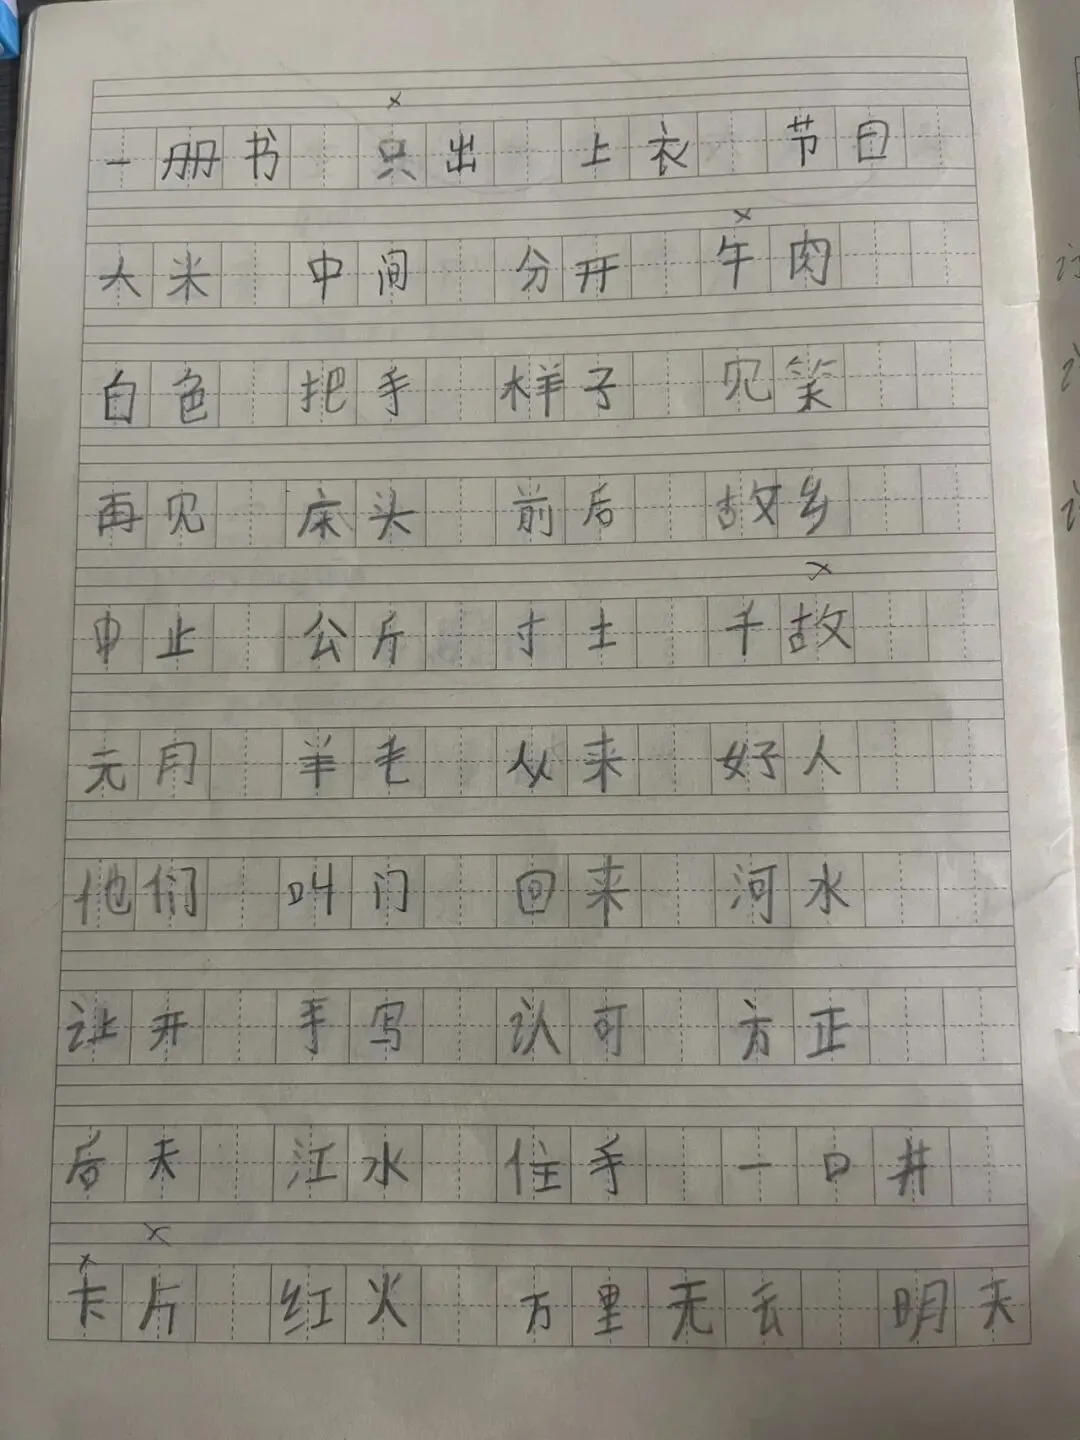 ×
一册书 只出 上衣 节日
×
大米 中间 分开 午肉
白色 把手 样子 见笑
再见 床头 前后 故乡
×
中止 公斤 寸土 千故
元月 羊毛 从来 好人
他们 叫门 回来 河水
让开 手写 认可 方正
后天 江水 住手 一口井
× ×
卡片 红火 万里无云 明天